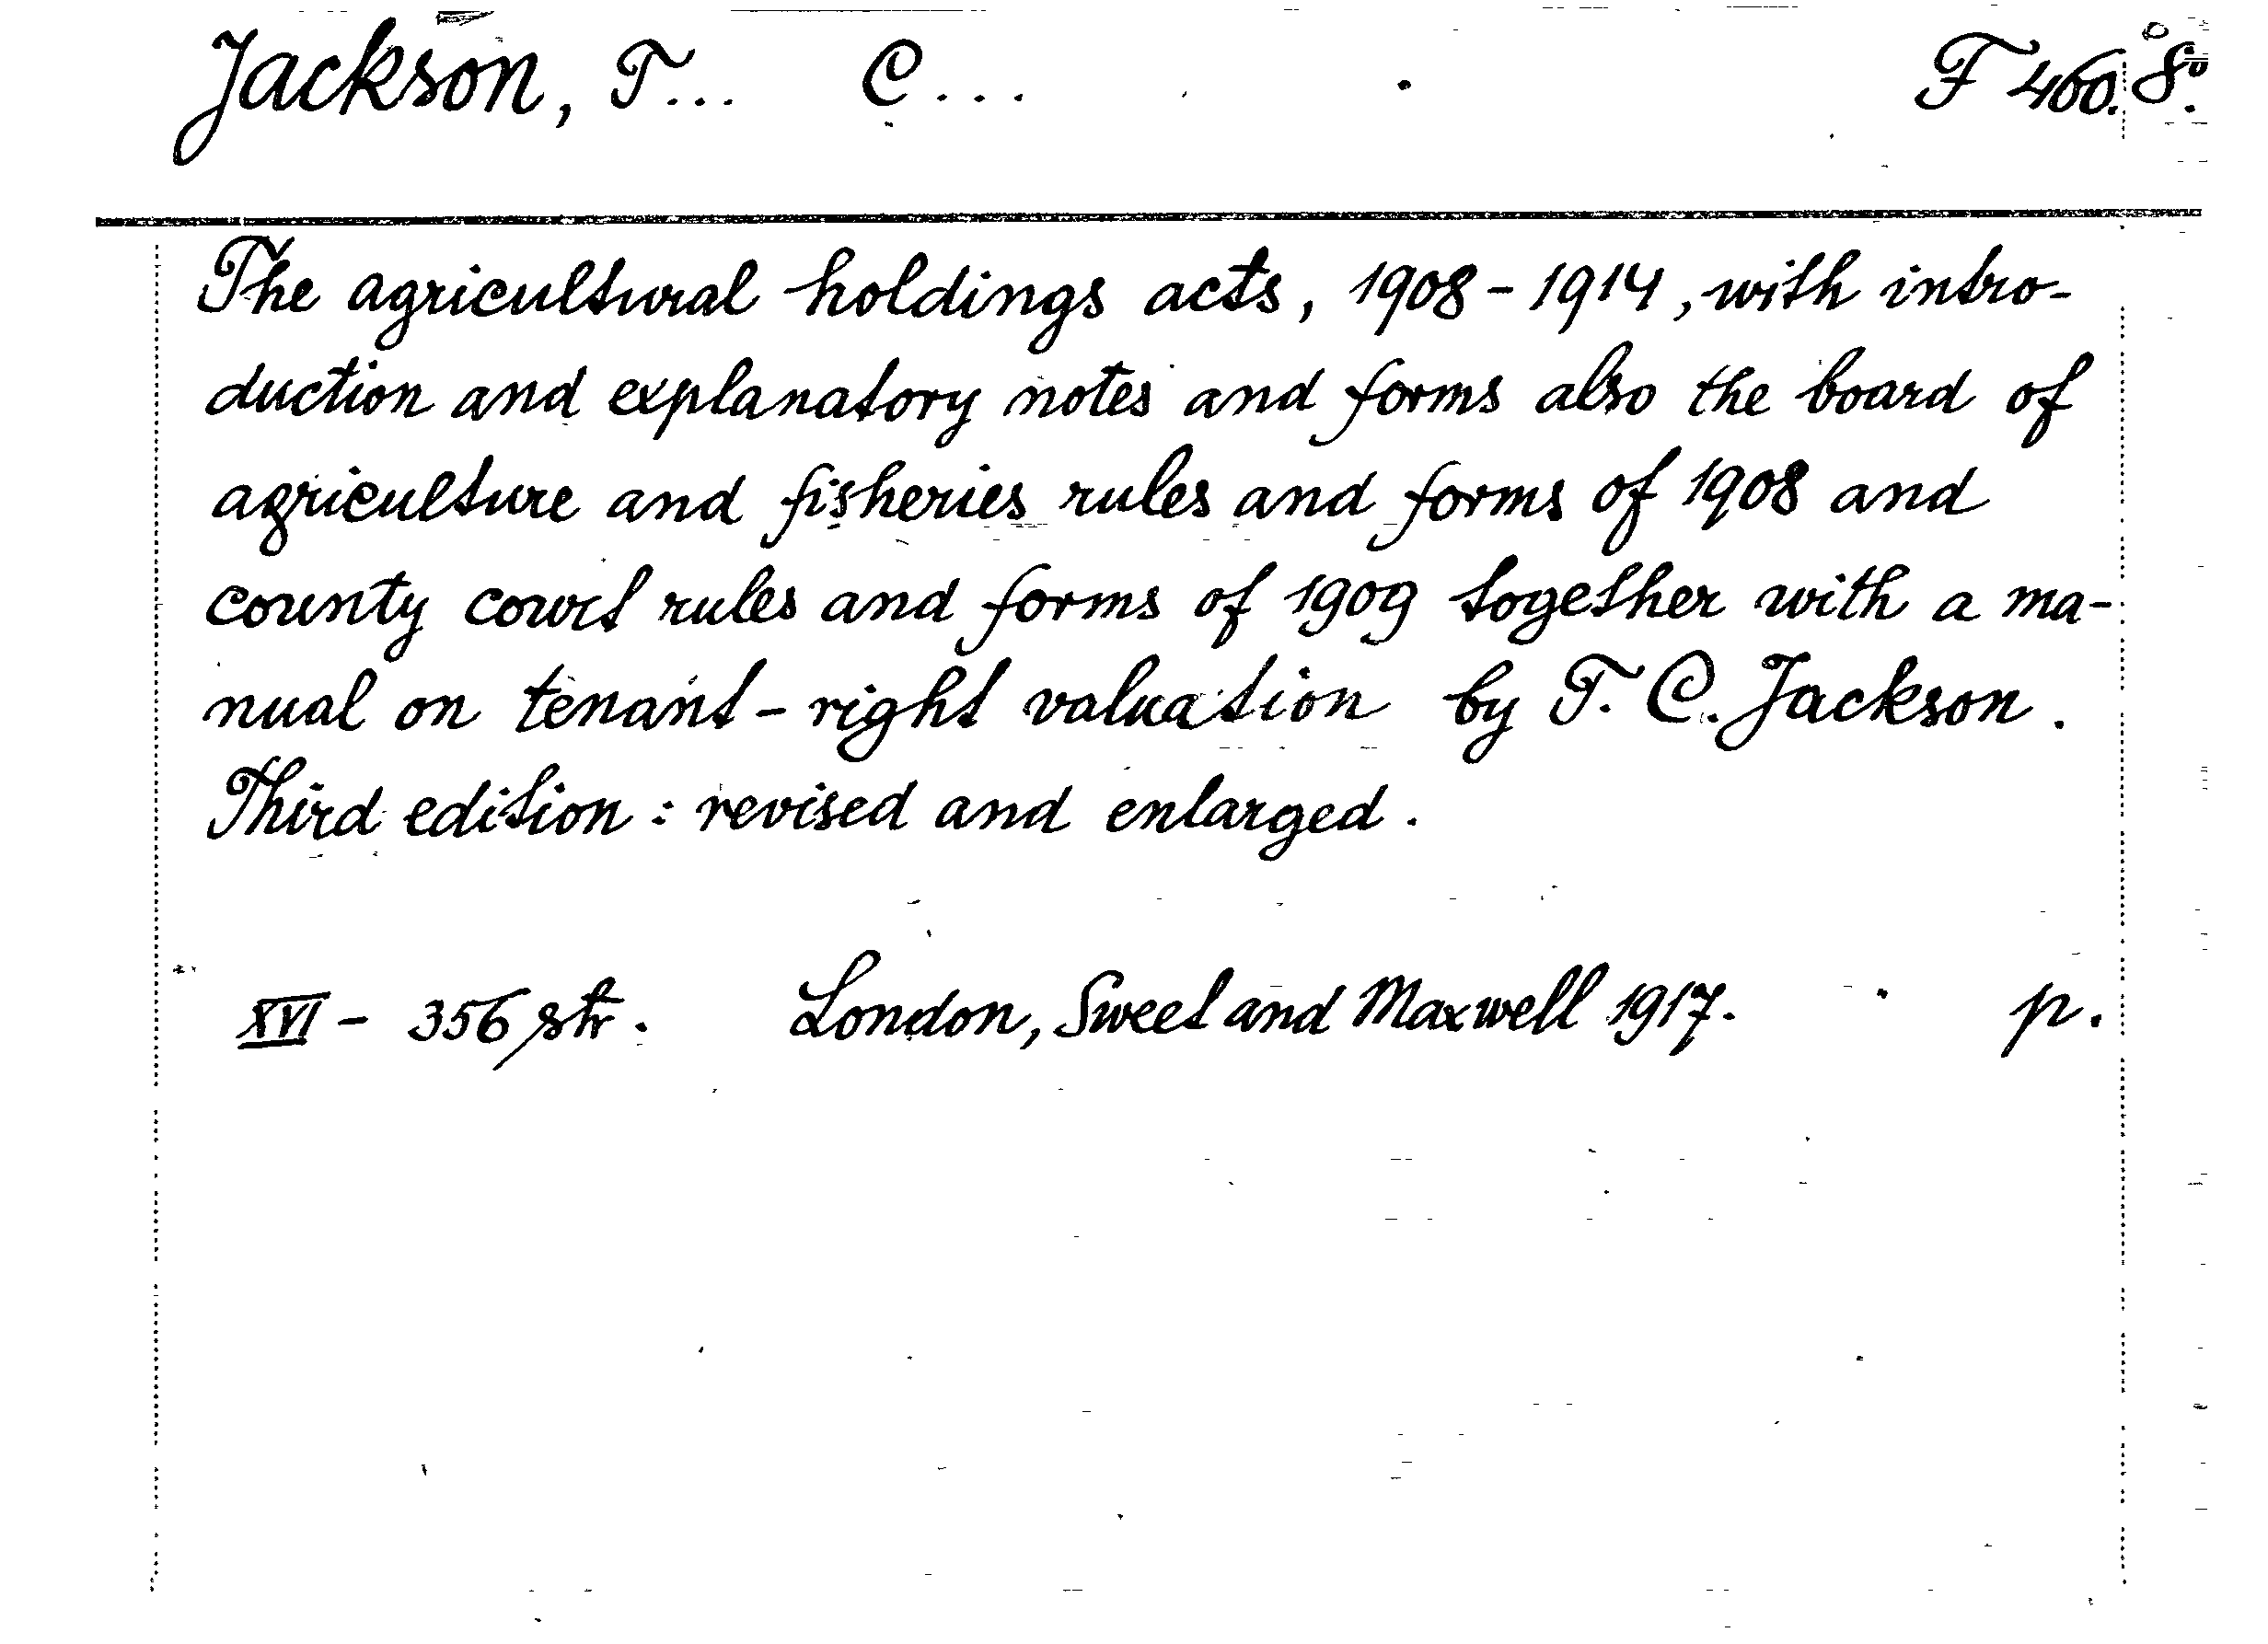 Jackson, T... C... F 460. 8º.
The agricultural holdings acts, 1908-1914, with intro-
duction and explanatory notes and forms also the board of
agriculture and fisheries rules and forms of 1908 and
county court rules and forms of 1909 together with a ma-
nual on tenant-right valuation by T. C. Jackson.
Third edition: revised and enlarged.
XVI - 356 str. London, Sweet and Maxwell 1917. p.